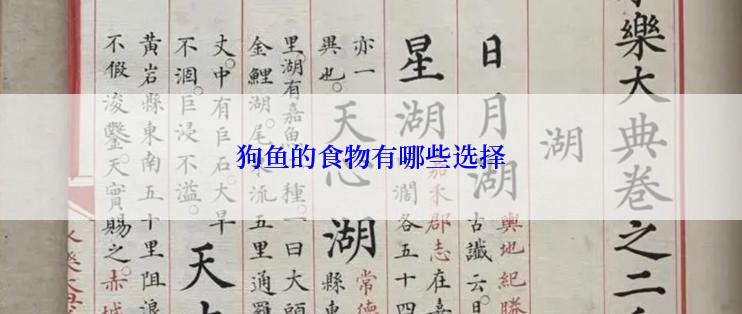 狗鱼的食物有哪些选择
樂大典卷之二
湖
輿地紀勝
日月湖
古讖云日
嘉禾郡志在嘉
星湖
濶各五十四
常德
天心湖
縣東
亦一
異也
里湖有嘉魚一種一曰大頭
金鯉湖尾水流五里通羅
天
丈中有巨石大旱
不涸巨浸不溢
黄岩縣東南五十里阻浪
不假浚鑿天實賜之赤城